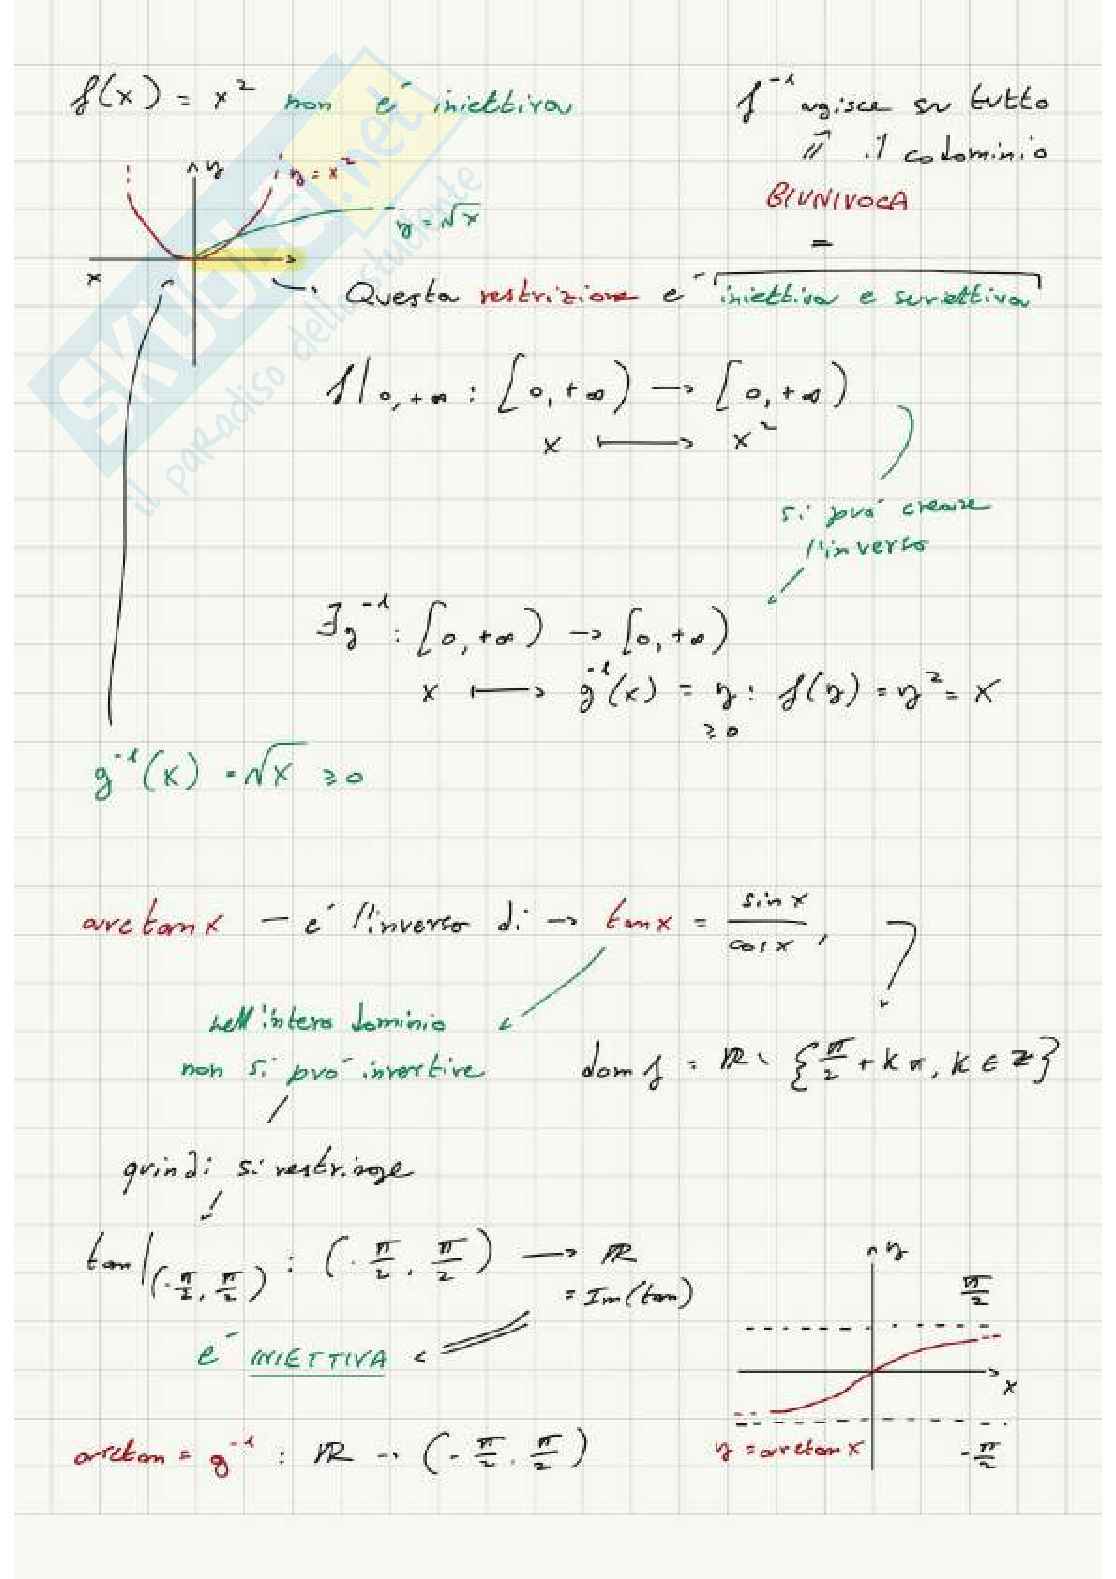 f(x) = x² non e´ iniettiva
f⁻¹ agisce su tutto
il codominio
BIUNIVOCA
y
y = x²
y = √x
x
Questa restrizione e´ iniettiva e suriettiva
f|₀,₊∞ : [0, +∞) → [0, +∞)
x ⟼ x²
si puo´ creare
l'inverso
∃g⁻¹ : [0, +∞) → [0, +∞)
x ⟼ g⁻¹(x) = y : f(y) = y² = x
≥ 0
g⁻¹(x) = √x ≥ 0
arctan x – e´ l'inverso di → tan x = sin x / cos x ,
nell'intero dominio
non si puo´ invertire
dom f = ℝ \ {π/2 + kπ, k ∈ ℤ}
quindi si restringe
tan|(-π/2, π/2) : (-π/2, π/2) → ℝ
= Im(tan)
e´ INIETTIVA
y
π/2
x
y = arctan x
-π/2
arctan = g⁻¹ : ℝ → (-π/2, π/2)
SKUOLA.net
il paradiso dello studente